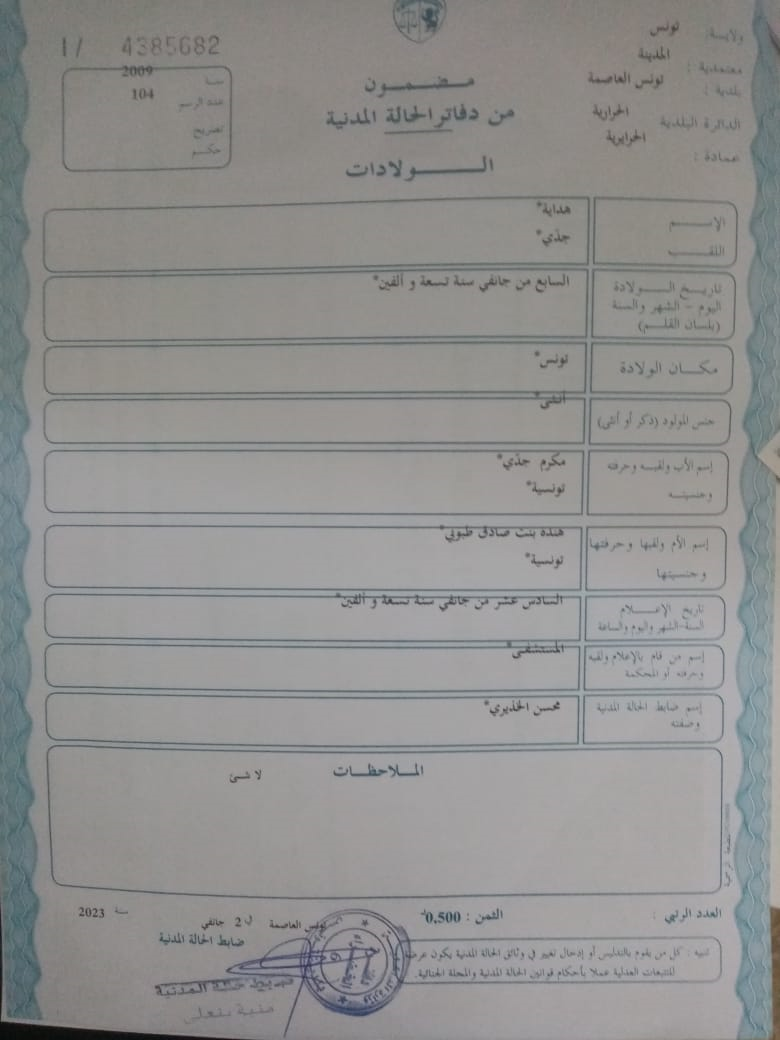 ولايـة: تونس
معتمدية : المدينة
بلدية : تونس العاصمة
الدائرة البلدية : الحرارية
عمادة : الحرايرية
I/ 4385682
سنـة 2009
عدد الرسم 104
تصريح
حكـم
مضمـون
من دفاتر الحالة المدنية
الـــولادات
الإســـم هداية*
اللقـــب جذي*
تاريـخ الـــولادة
اليوم - الشهر والسنة
(بلسان القلـم)
السابع من جانفي سنة تسعة و ألفين*
مكـــان الولادة تونس*
جنس المولود (ذكر أو أنثى) أنثى*
إسم الأب ولقبـه وحرفته مكرم جذي*
وجنسيتـه تونسية*
إسم الأم ولقبها وحرفتها هنده بنت صادق طبوبي*
وجنسيتها تونسية*
تاريخ الإعـــلام
السنة-الشهر واليوم والساعة
السادس عشر من جانفي سنة تسعة و ألفين*
إسم من قام بالإعلام ولقبه
وحرفته أو المحكمة
المستشفى*
إسم ضابط الحالة المدنية
وصفته
محسن الخذيري*
الملاحظـات
لا شئ
العدد الرتبي :
الثمن : 0.500د
تونس العاصمة في 2 جانفي سنة 2023
ضابط الحالة المدنية
تنبيه : كل من يقوم بالتدليس أو إدخال تغيير في وثائق الحالة المدنية يكون عرضة
للتتبعات العدلية عملا بأحكام قوانين الحالة المدنية والمجلة الجنائية.
ضابط حالة المدنية